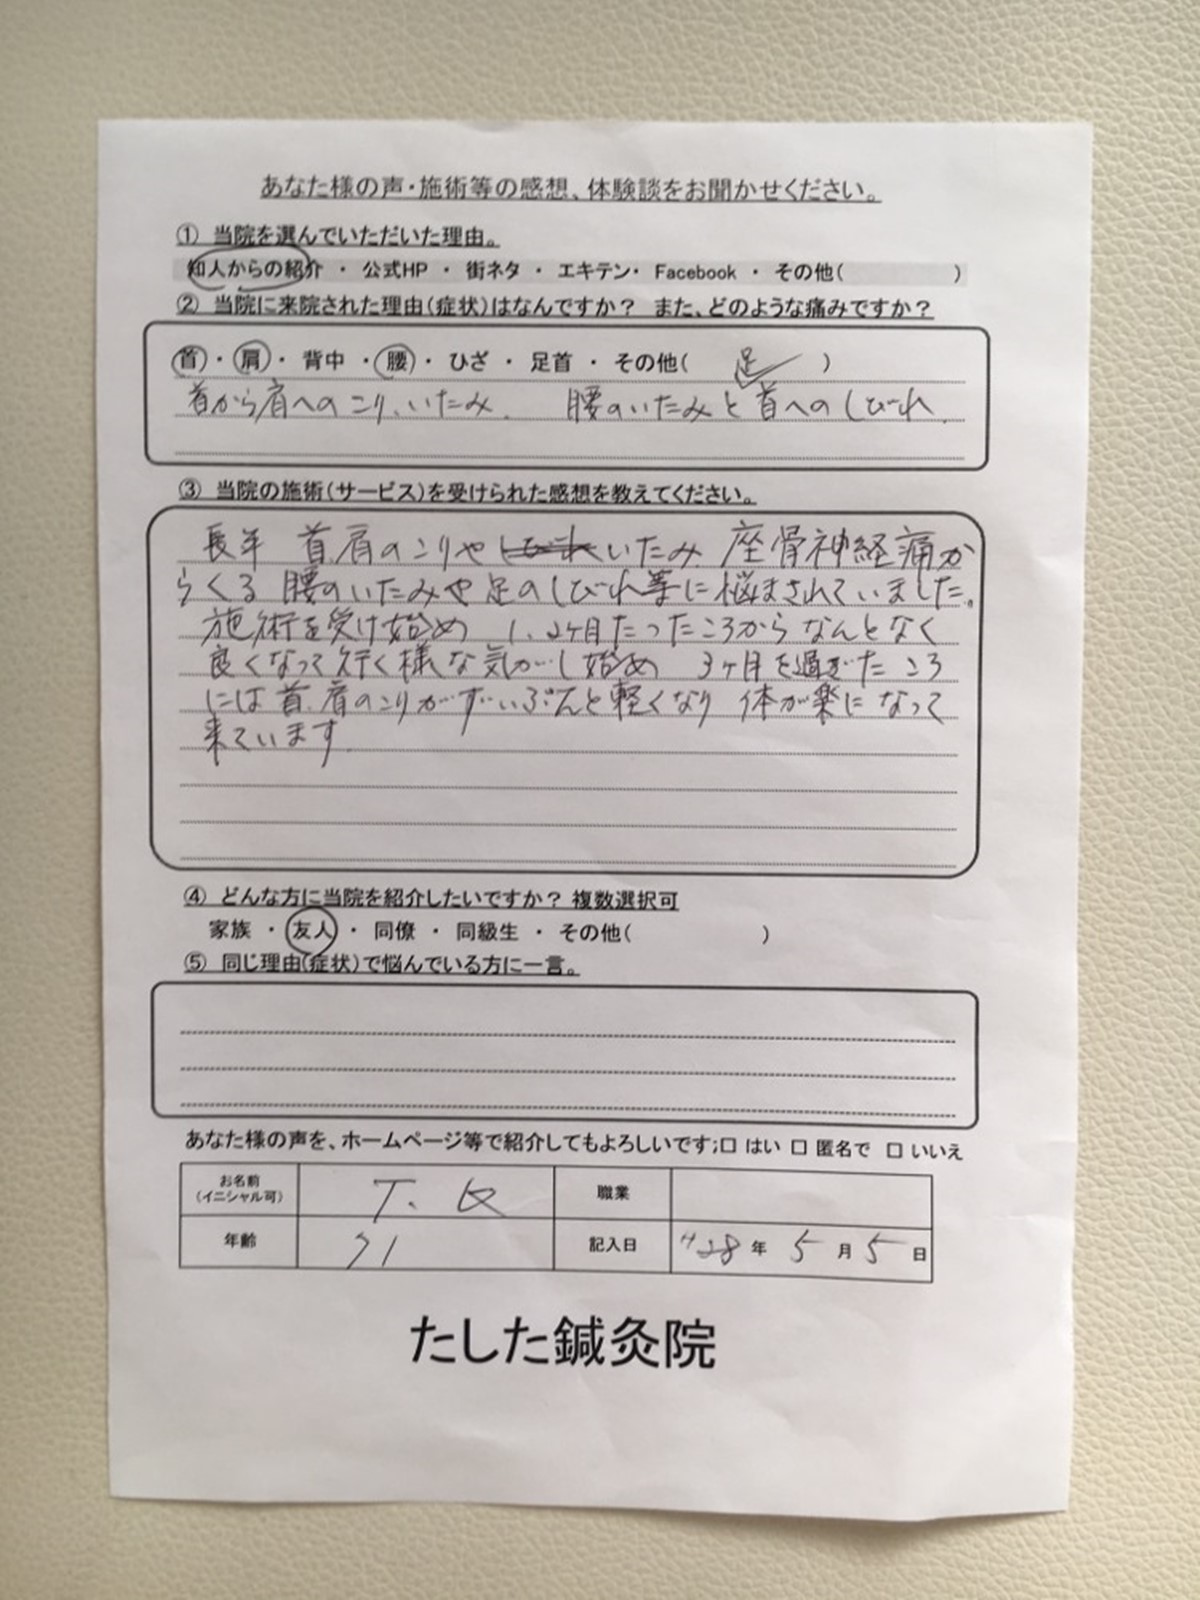 あなた様の声・施術等の感想、体験談をお聞かせください。
① 当院を選んでいただいた理由。
知人からの紹介 ・ 公式HP ・ 街ネタ ・ エキテン・ Facebook ・ その他( )
② 当院に来院された理由(症状)はなんですか? また、どのような痛みですか?
首 ・ 肩 ・ 背中 ・ 腰 ・ ひざ ・ 足首 ・ その他( 足 )
首から肩へのこり、いたみ. 腰のいたみと首へのしびれ.
③ 当院の施術(サービス)を受けられた感想を教えてください。
長年 首.肩のこりやいたみ. 座骨神経痛か
らくる 腰のいたみや足のしびれ等に悩まされていました。
施術を受け始め 1、2ヶ月たったころからなんとなく
良くなって行く様な気がし始め 3ヶ月を過ぎたころ
には首.肩のこりがずいぶんと軽くなり 体が楽になって
来ています.
④ どんな方に当院を紹介したいですか? 複数選択可
家族 ・ 友人 ・ 同僚 ・ 同級生 ・ その他( )
⑤ 同じ理由(症状)で悩んでいる方に一言。
あなた様の声を、ホームページ等で紹介してもよろしいです;□ はい □ 匿名で □ いいえ
お名前 T. 職業
(イニシャル可)
年齢 71 記入日 H28 年 5 月 5 日
たした鍼灸院